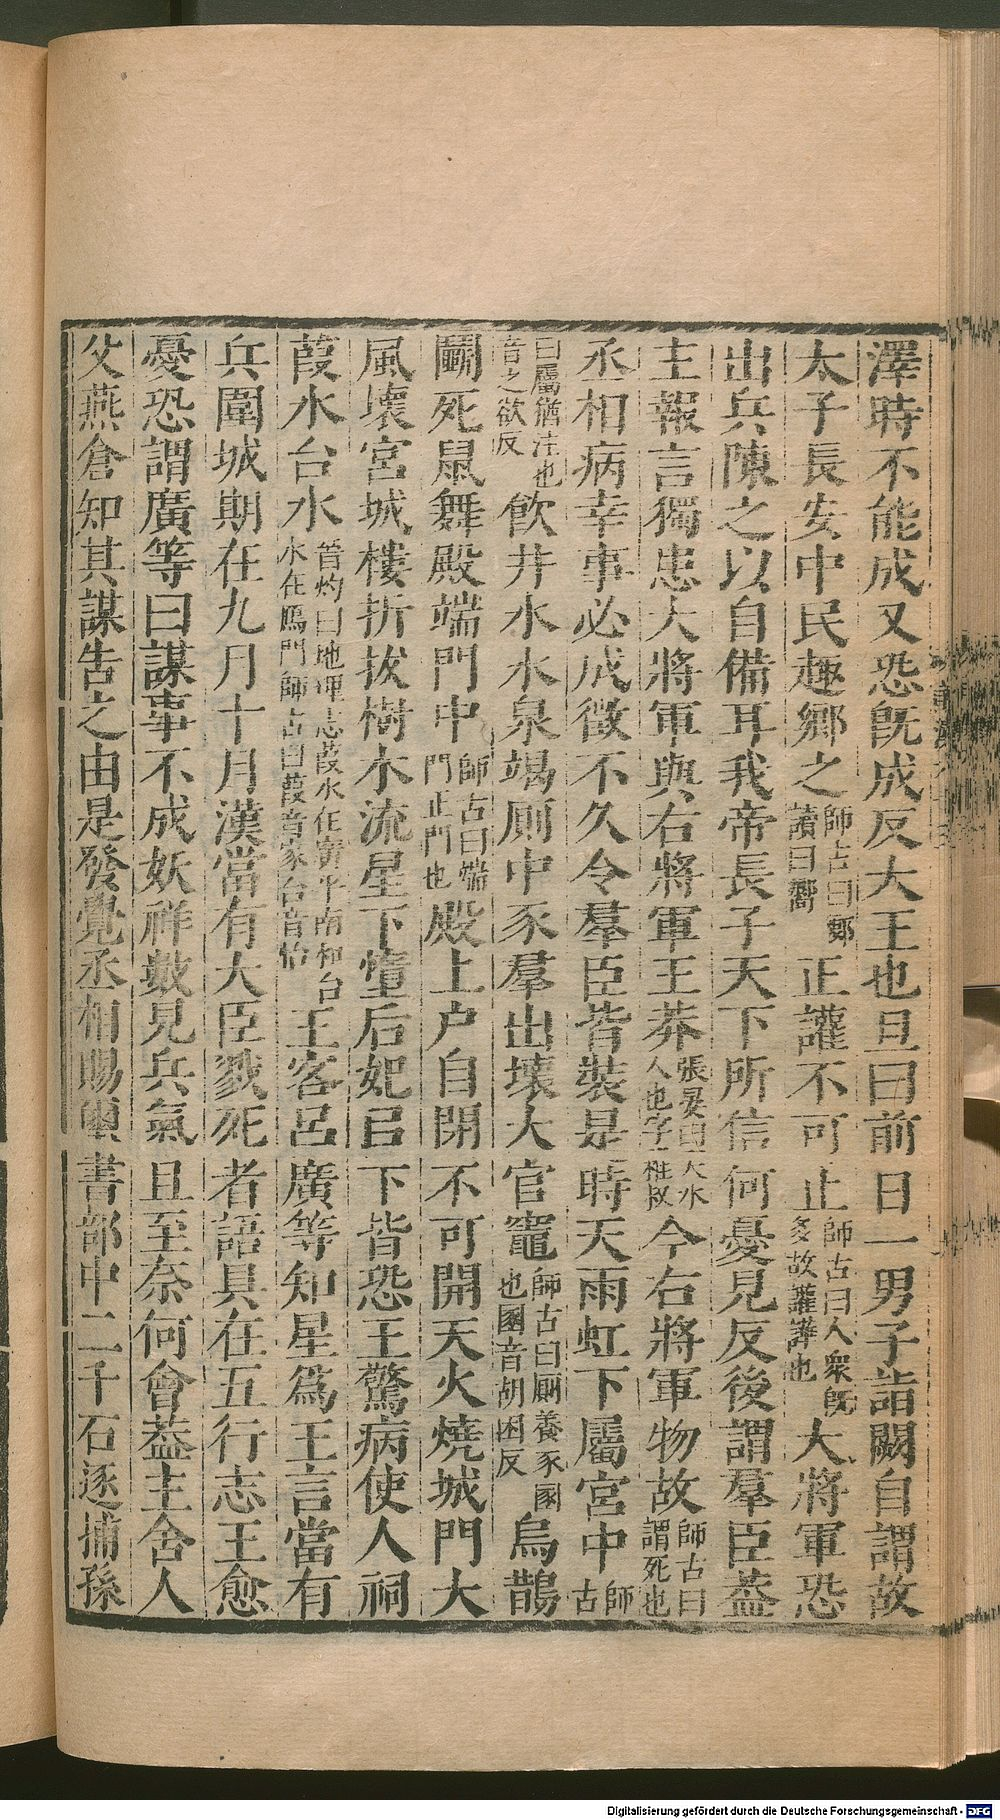 澤時不能成又恐旣成反大王也旦曰前日一男子詣闕自謂故
太子長安中民趣鄉之師古曰鄉讀曰嚮正讙不可止師古曰人衆旣多故讙譁也大將軍恐
出兵陳之以自備耳我帝長子天下所信何憂見反後謂羣臣蓋
主報言獨患大將軍與右將軍王莽張晏曰天水人也字稚叔今右將軍物故師古曰謂死也
丞相病幸事必成徵不久令羣臣皆裝是時天雨虹下屬宮中師古
曰屬猶注也音之欲反飮井水水泉竭厠中豕羣出壞大官竈師古曰厠養豕圂也圂音胡困反烏鵲
鬭死鼠舞殿端門中師古曰端門正門也殿上户自閉不可開天火燒城門大
風壞宮城樓折拔樹木流星下墯后妃㠯下皆恐王驚病使人祠
葭水台水晉灼曰地理志葭水在廣平南和台水在鴈門師古曰葭音家台音怡王客呂廣等知星爲王言當有
兵圍城期在九月十月漢當有大臣戮死者語具在五行志王愈
憂恐謂廣等曰謀事不成妖祥數見兵氣且至奈何會蓋主舍人
父燕倉知其謀告之由是發覺丞相賜璽書部中二千石逐捕孫
Digitalisierung gefördert durch die Deutsche Forschungsgemeinschaft - DFG